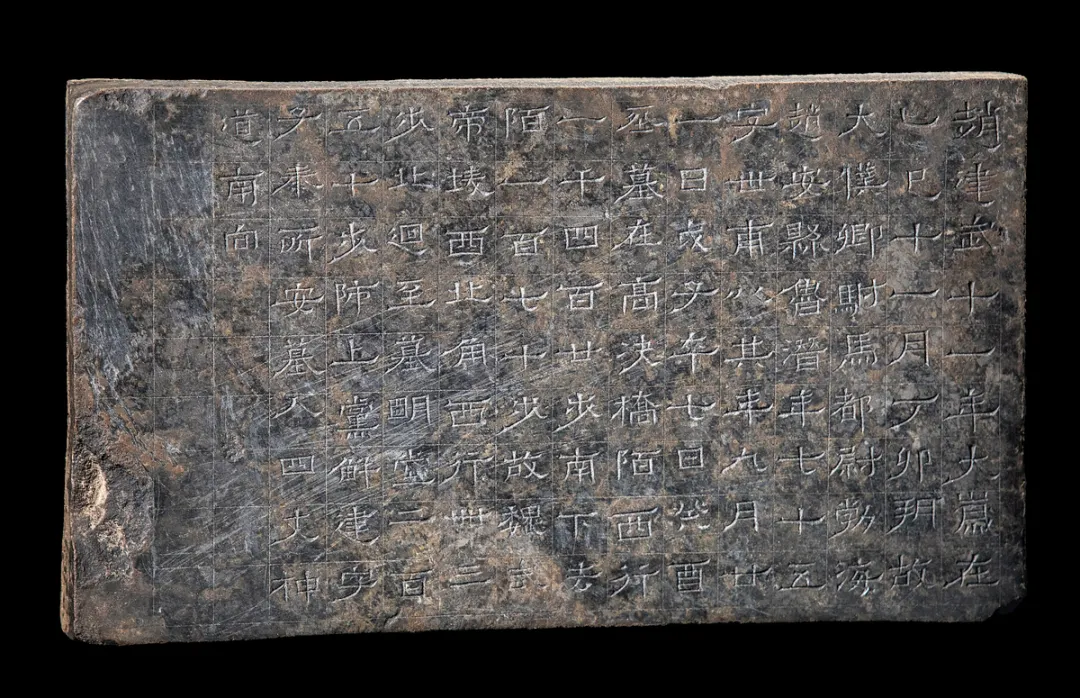 趙建武十一年大歲在
乙巳十一月丁卯朔故
大僕卿駙馬都尉勃海
趙安縣魯潛年七十五
字世甫以其年九月廿
一日戊子卒七日癸酉
丕墓在高決橋陌西行
一千四百廿步南下去
陌一百七十步故魏武
帝陵西北角西行卌三
步北迴至墓明堂二百
五十步師上黨解建字
子奉所安墓入四丈神
道南向